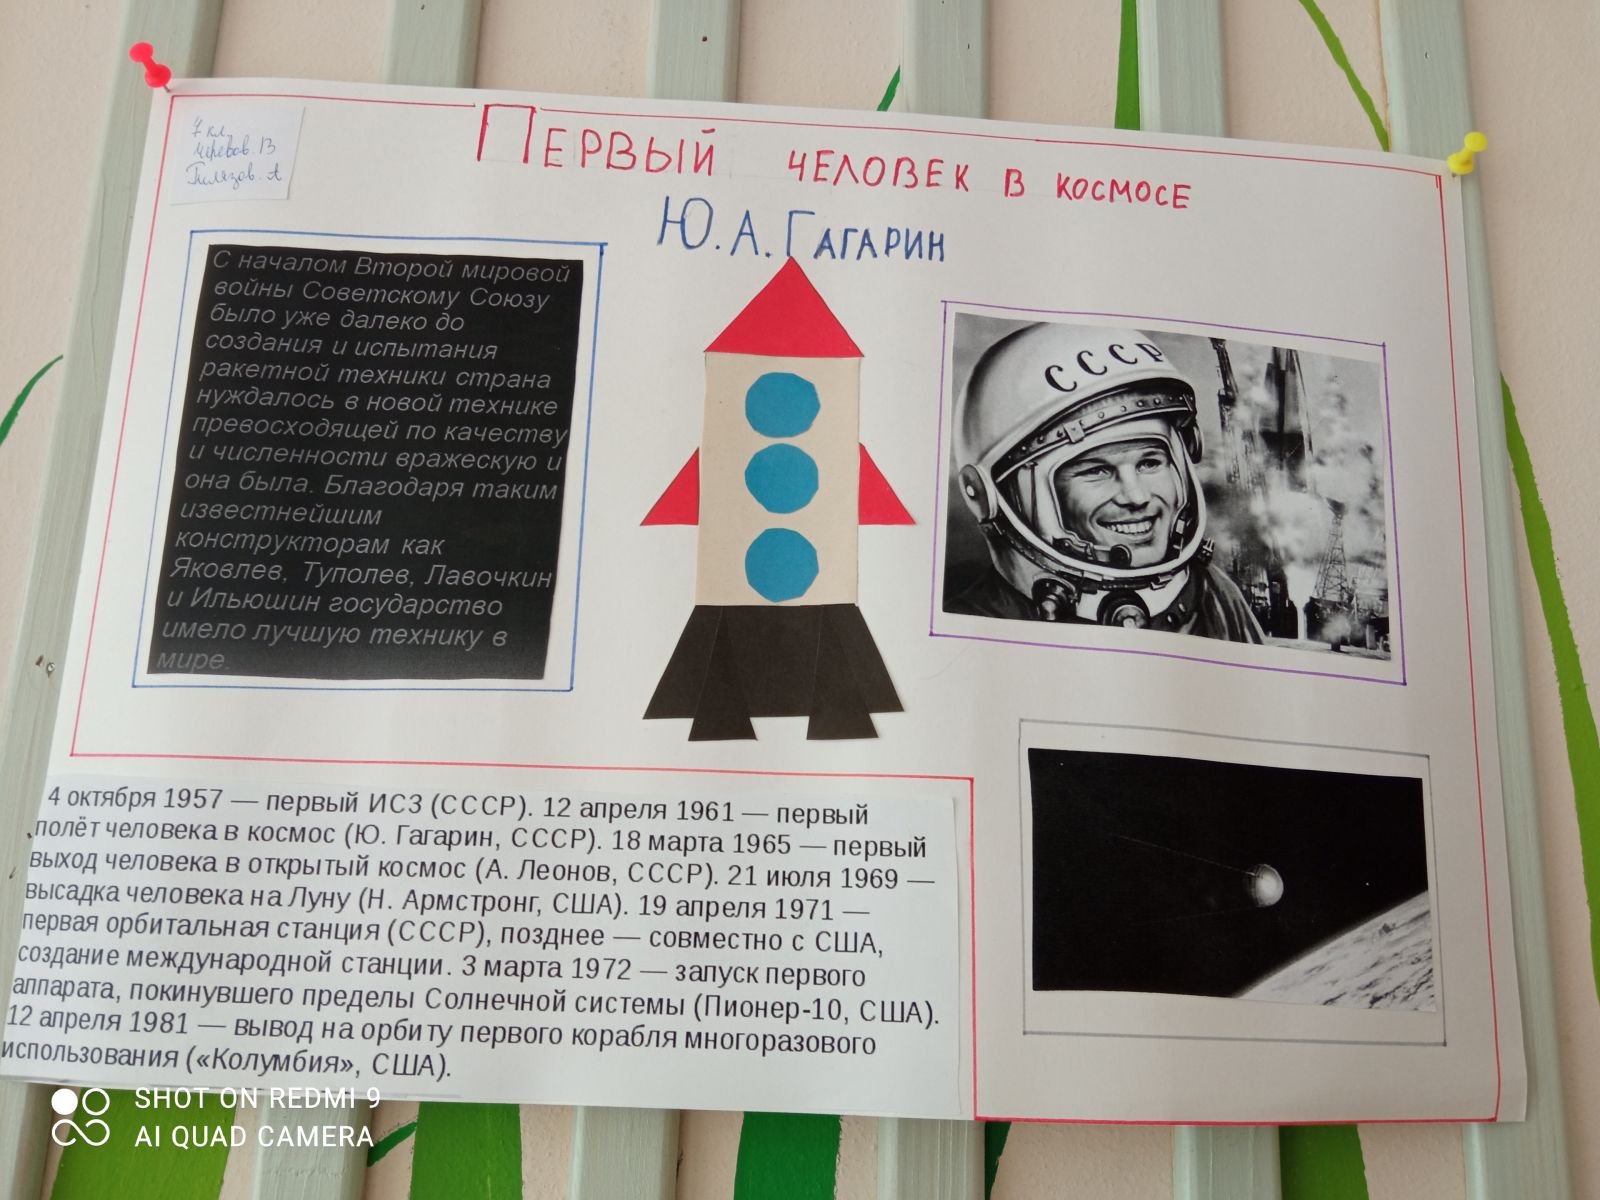 7 кл.
Черевов. В
Гилязов. А
Первый человек в космосе
Ю. А. Гагарин
С началом Второй мировой
войны Советскому Союзу
было уже далеко до
создания и испытания
ракетной техники страна
нуждалось в новой технике
превосходящей по качеству
и численности вражескую и
она была. Благодаря таким
известнейшим
конструкторам как
Яковлев, Туполев, Лавочкин
и Ильюшин государство
имело лучшую технику в
мире.
СССР
4 октября 1957 — первый ИСЗ (СССР). 12 апреля 1961 — первый
полёт человека в космос (Ю. Гагарин, СССР). 18 марта 1965 — первый
выход человека в открытый космос (А. Леонов, СССР). 21 июля 1969 —
высадка человека на Луну (Н. Армстронг, США). 19 апреля 1971 —
первая орбитальная станция (СССР), позднее — совместно с США,
создание международной станции. 3 марта 1972 — запуск первого
аппарата, покинувшего пределы Солнечной системы (Пионер-10, США).
12 апреля 1981 — вывод на орбиту первого корабля многоразового
использования («Колумбия», США).
SHOT ON REDMI 9
AI QUAD CAMERA